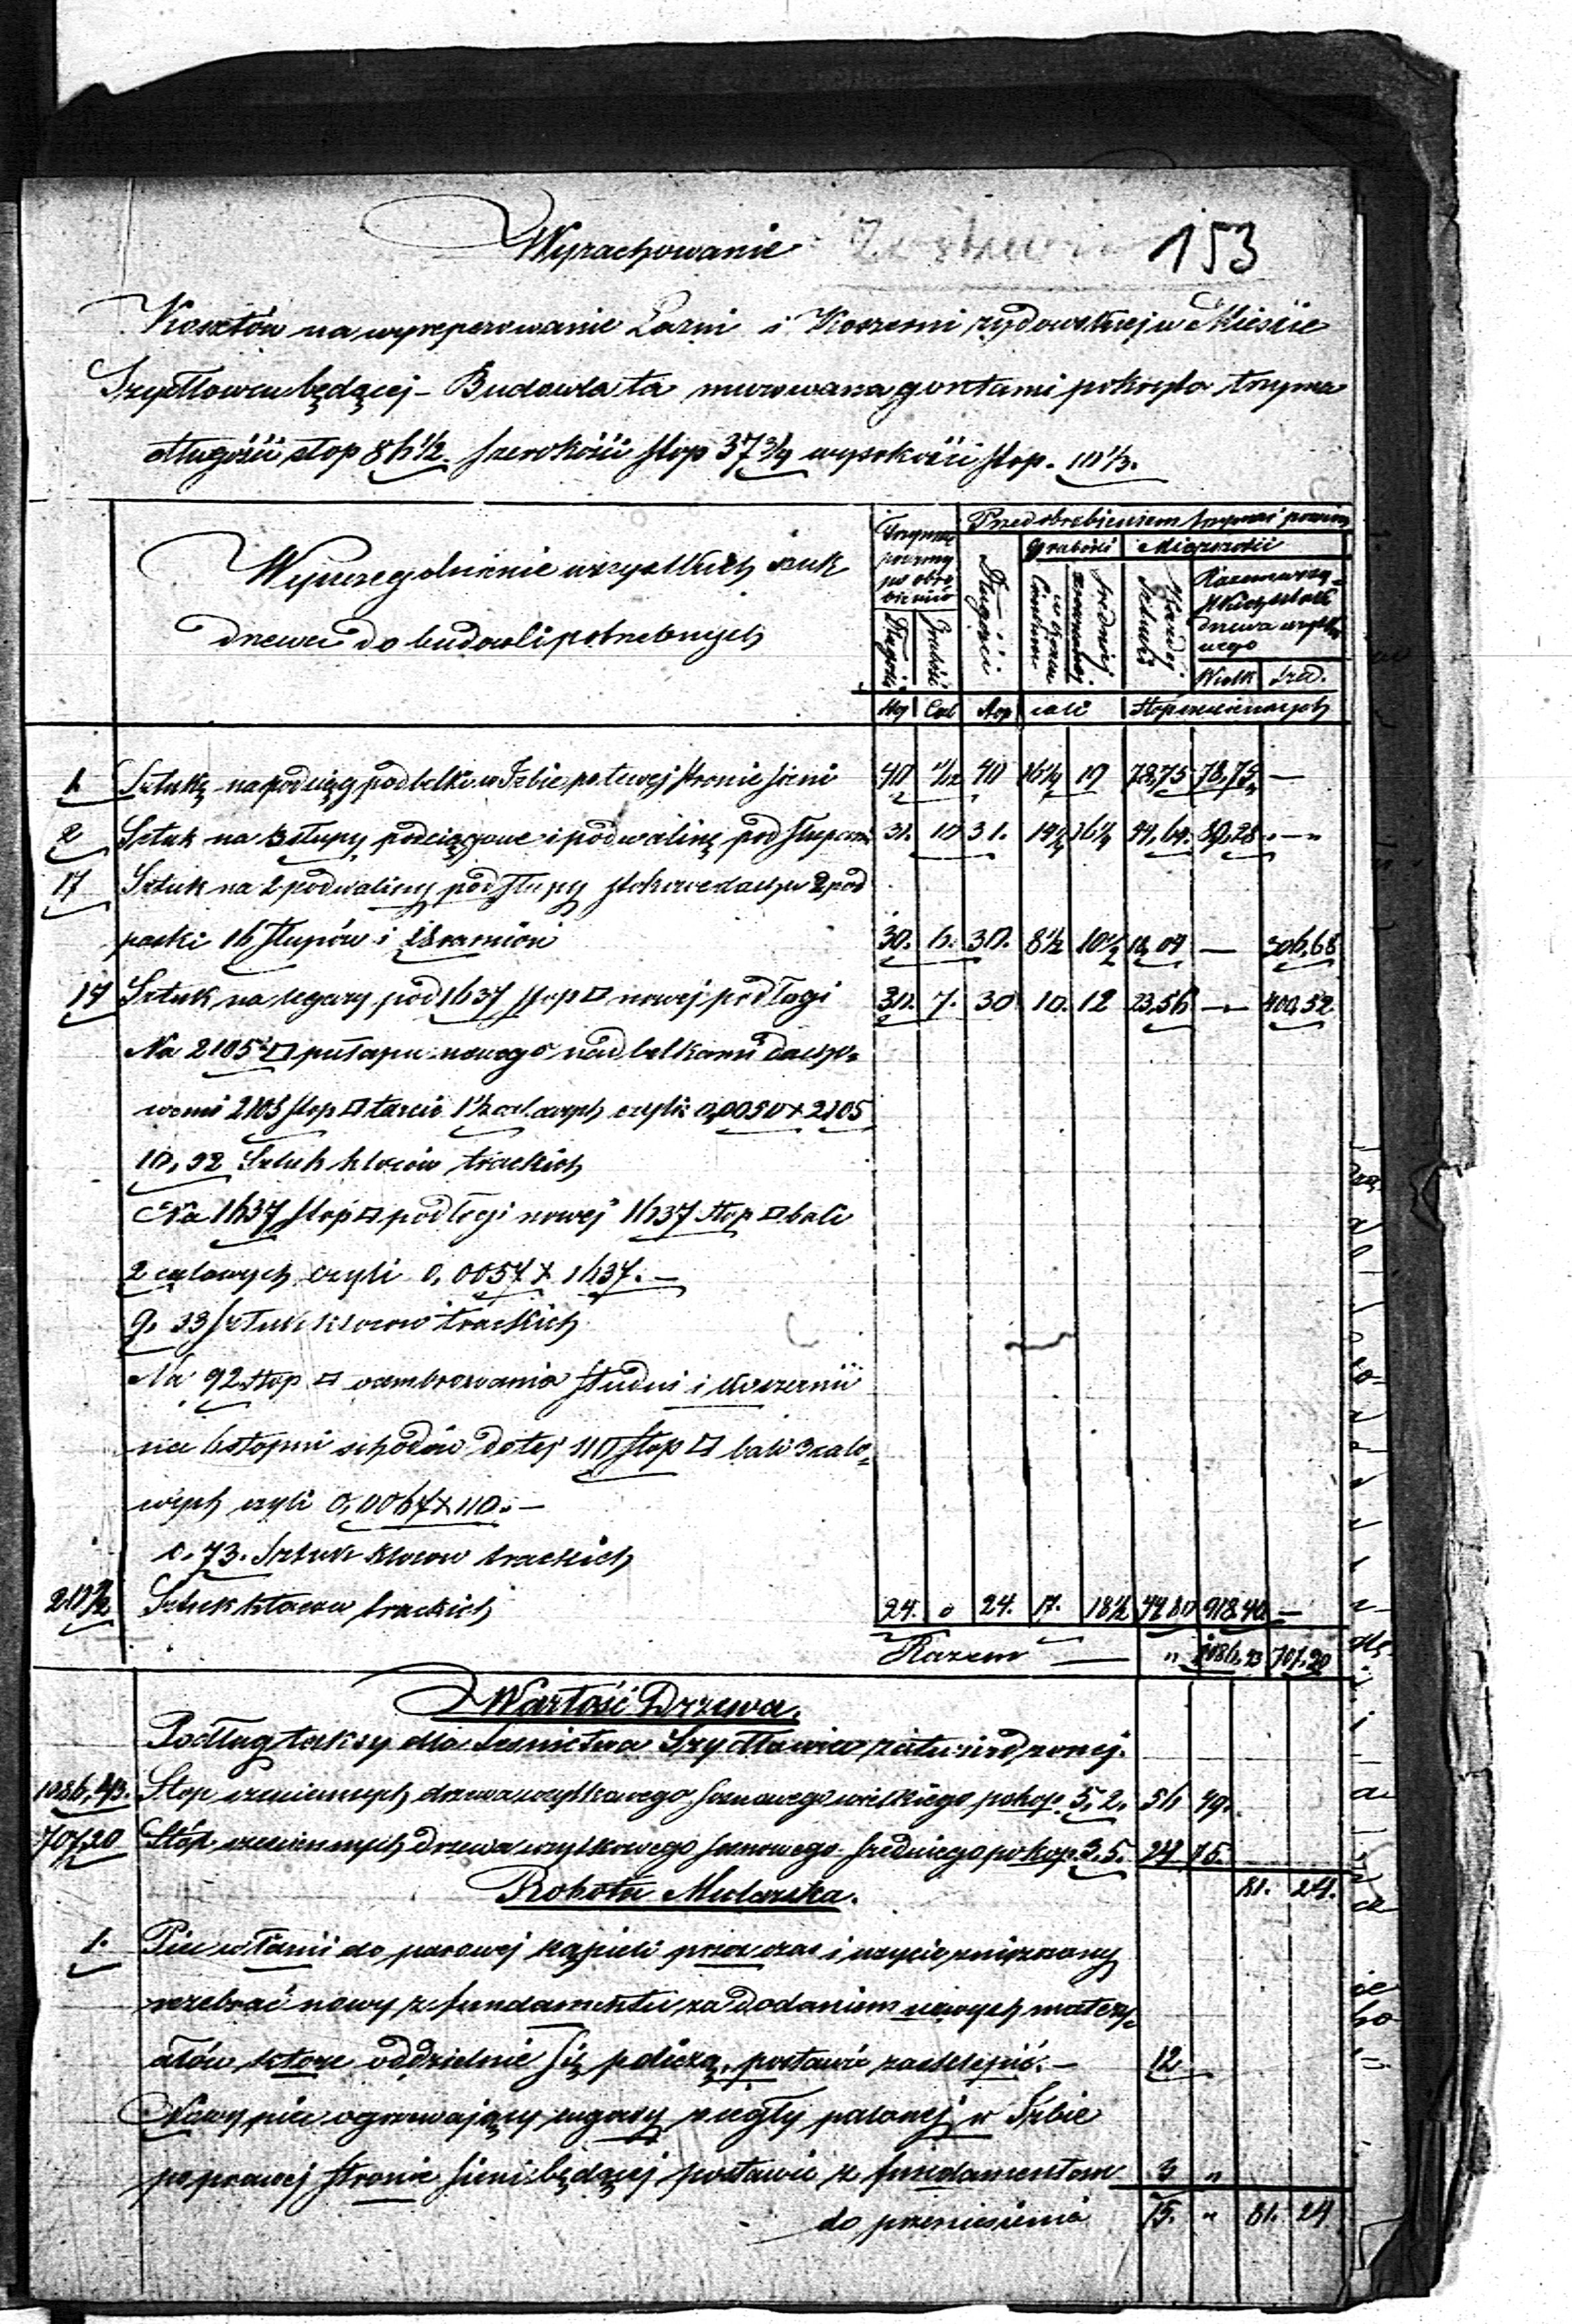 153
Wyrachowanie
Kosztów na wyreperowanie Łazni i Koszerni żydowskiej w Mieście
Szydłowcu będącej – Budowla ta murowana gontami pokryta trzyma
długości stop 86 1/2. szerokości stop 37 3/4 wysokości stop. 10 1/3.
Wyszczegolnienie wszystkich sztuk
drzewa do budowli potrzebnych
Trzymać powinny po obro bieniu
Przed obrobieniem trzymać powinny
Grubości Miąszości
Długości Grubość Długości w cieńszym końcu średniej Każdej sztuki
Razem wszy= stkich sztuk drzewa użytko wego
Wielk śred.
stop Cali stop cali stop sześciennych
1. Sztukę na podciąg pod belki w Izbie po lewej stronie sieni 40 11/12 40 16 1/2 19 78,75 78,75 —
2 Sztuk na 3 słupy, podciągowe i podwalinę pod słupami 31. 10 31. 14 1/2 16 1/2 44,64. 89,28. — "
17 Sztuk na 2 podwaliny pod słupy stolcowe dachu 2 pod
paski 16 słupów i 28 ramion 30. 6. 30. 8 1/2 10 1/2 18,04 — 306,68
17 Sztuk na legary pod 1637 stop □ nowej podłogi 30. 7. 30 10. 12 23,56 — 400,52
Na 2105 □ pułapu nowego nad belkami dacho=
wemi 2105 stop □ tarcic 1 1/2 calowych czyli 0,0050 × 2105
10,52 Sztuk kloców trackich
Na 1637 stop □ podłogi nowej 1637 stop □ bali
2 calowych czyli 0,0057 × 1637. —
9. 33 Sztuk klocow trackich
Na 92 stop □ ocembrowania studni i w koszerni
na 6 stopni schodów do tej 110 stop □ bali 3 calo=
wych czyli 0,0067 × 110. —
0. 73. Sztuk klocow trackich
20 1/2 Sztuk klocow trackich 24. " 24. 17. 18 1/2 44,80 918.40 —
Razem — " 1086,43 707,20
Wartość Drzewa.
Podług taksy dla Leśnictwa Szydłowiec zatwierdzonej.
1086,43. Stop sześciennych drzewa użytkowego sosnowego wielkiego po kop. 5,2. 56 49.
707,20 Stóp sześciennych drzewa użytkowego sosnowego średniego po kop. 3.5. 24 75.
81. 24.
Robota Mularska.
1. Piec w łaźni do parowej kąpieli przez czas i użycie zniszczony
rozebrać nowy z fundamentu, za dodaniem nowych matery=
ałów które oddzielnie się policzą, postawić zasklepić. — 12
Nowy piec ogrzewający cugowy z cegły palonej w Izbie
po prawej stronie sieni będącej postawić z fundamentem 3 "
do przeniesienia 15. " 81. 24